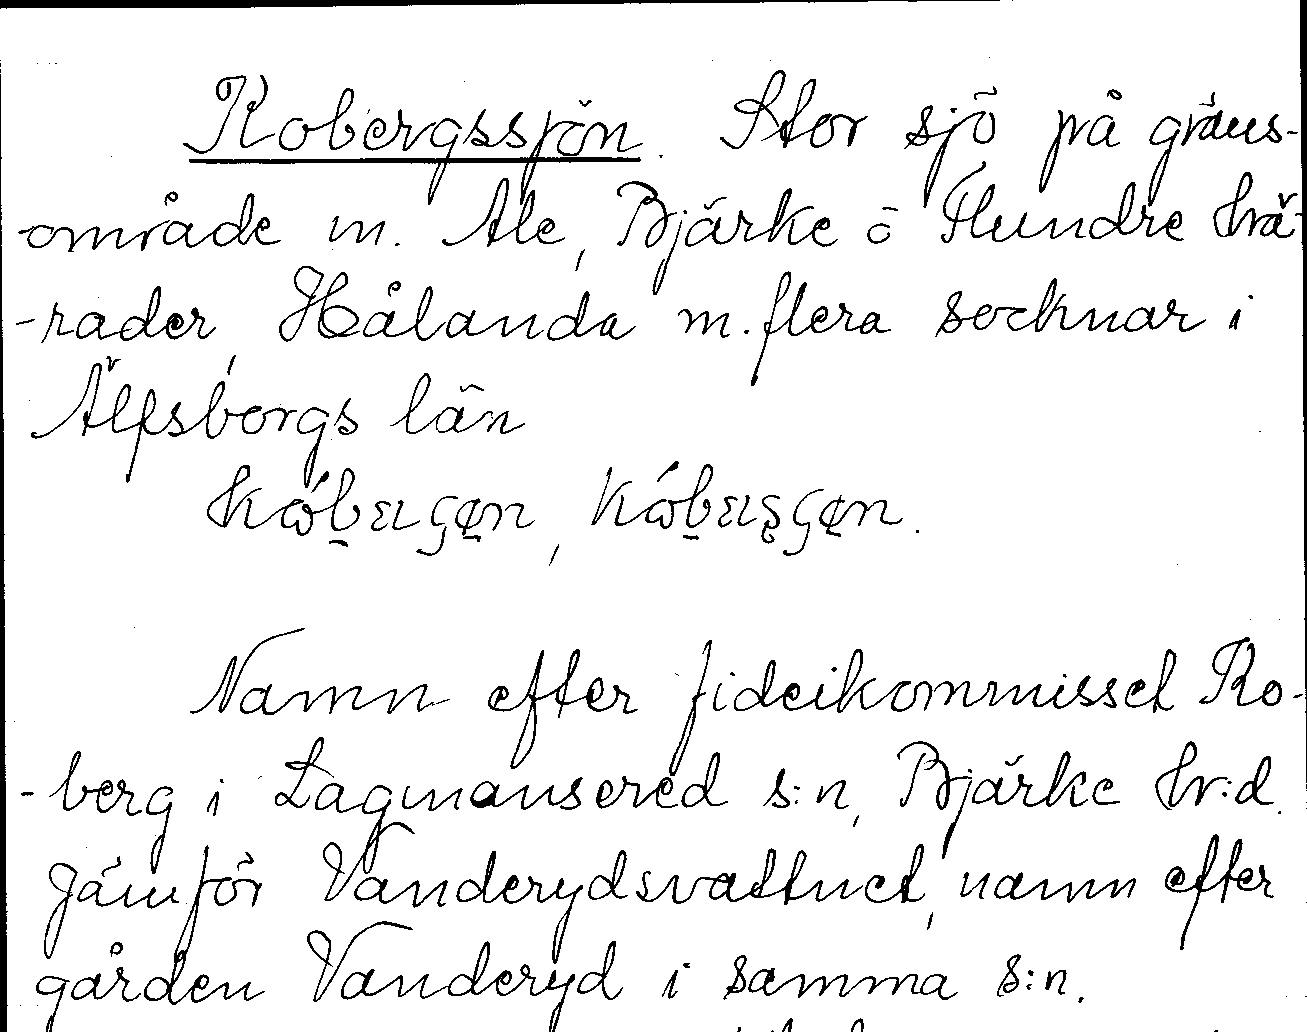 Kobergssjön. Stor sjö på gräns-
-område m. Ale, Bjärke o Flundre hrä-
-rader, Hålanda m. flera socknar i
Älfsborgs län

Namn efter fideikommisset Ko-
-berg i Lagmansered s:n, Bjärke hr:d.
Jämför Vanderydsvattnet, namn efter
gården Vanderyd i samma s:n.